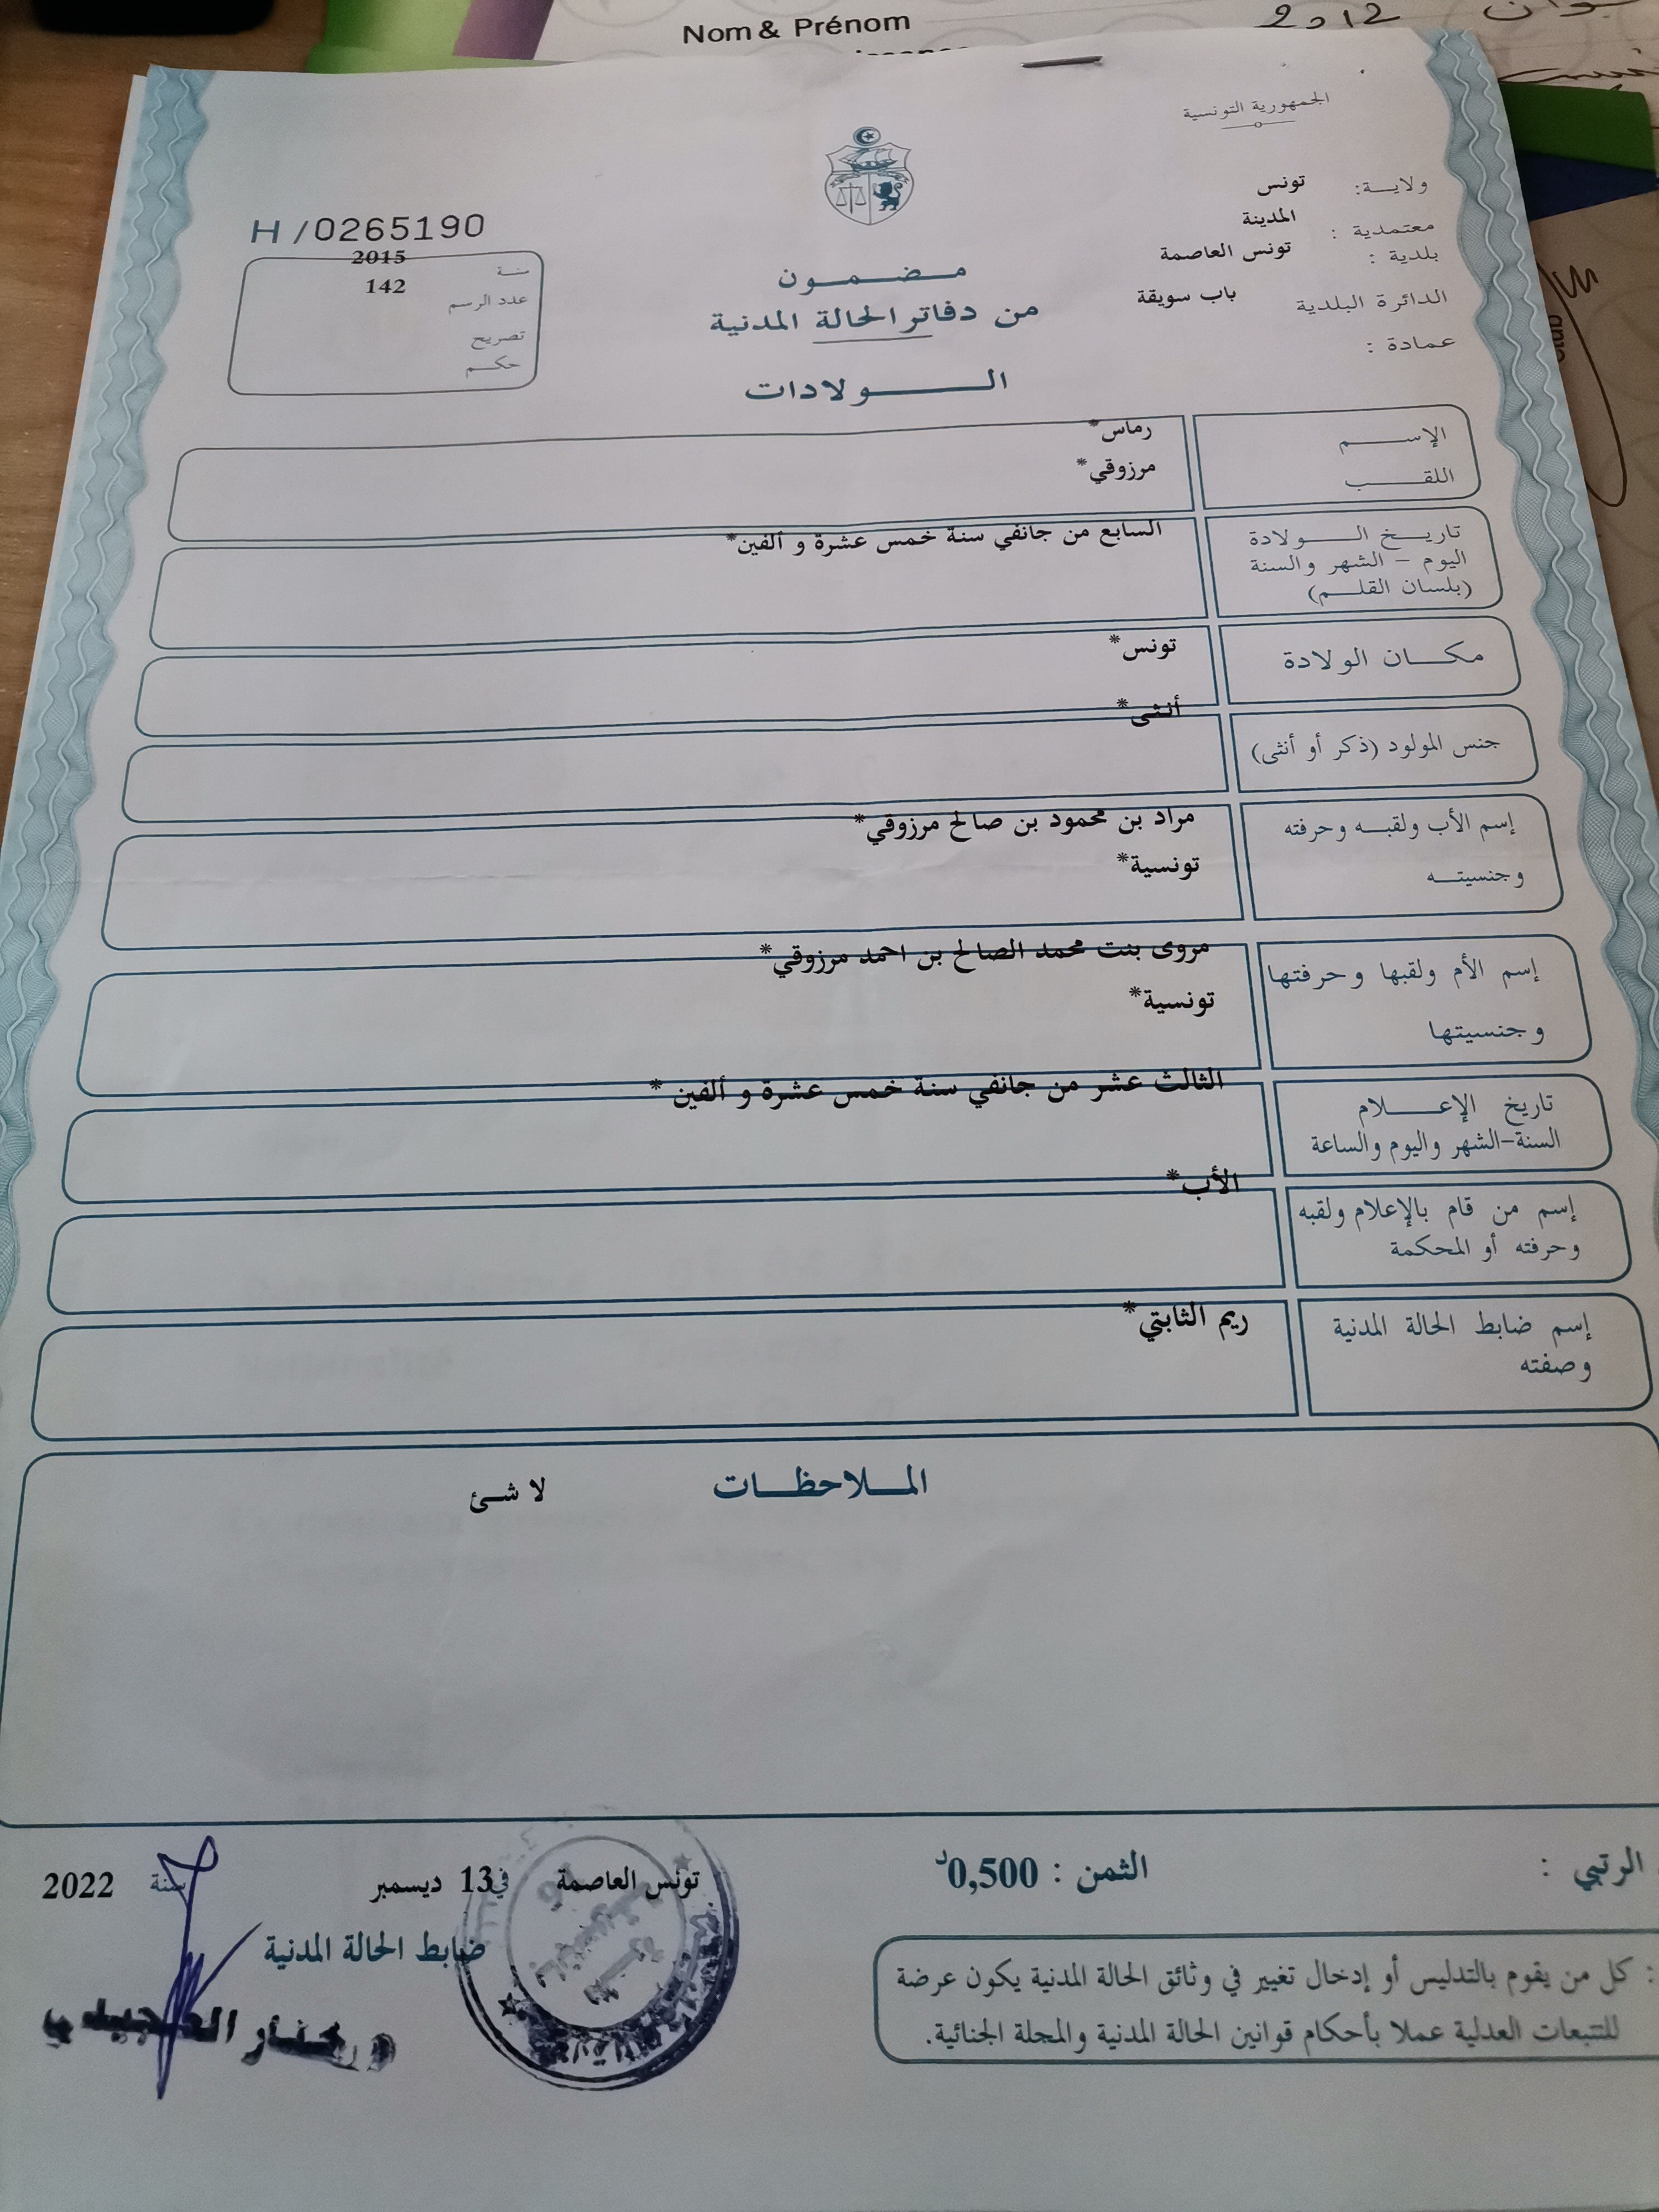 Nom & Prénom
2012
الجمهورية التونسية
ولاية: تونس
معتمدية: المدينة
بلدية: تونس العاصمة
الدائرة البلدية باب سويقة
عمادة:
H/0265190
سنة 2015
عدد الرسم 142
تصريح
حكم
مضمون
من دفاتر الحالة المدنية
الولادات
الإسم رماس*
اللقب مرزوقي*
تاريخ الولادة السابع من جانفي سنة خمس عشرة و ألفين*
اليوم - الشهر والسنة
(بلسان القلم)
مكان الولادة تونس*
جنس المولود (ذكر أو أنثى) أنثى*
إسم الأب ولقبه وحرفته مراد بن محمود بن صالح مرزوقي*
وجنسيته تونسية*
إسم الأم ولقبها وحرفتها مروى بنت محمد الصالح بن احمد مرزوقي*
وجنسيتها تونسية*
تاريخ الإعلام الثالث عشر من جانفي سنة خمس عشرة و ألفين*
السنة-الشهر واليوم والساعة
إسم من قام بالإعلام ولقبه الأب*
وحرفته أو المحكمة
إسم ضابط الحالة المدنية ريم الثابتي*
وصفته
الملاحظات لا شئ
الرتبي : الثمن : 0,500د
تونس العاصمة في 13 ديسمبر سنة 2022
ضابط الحالة المدنية
: كل من يقوم بالتدليس أو إدخال تغيير في وثائق الحالة المدنية يكون عرضة
للتتبعات العدلية عملا بأحكام قوانين الحالة المدنية والمجلة الجنائية.